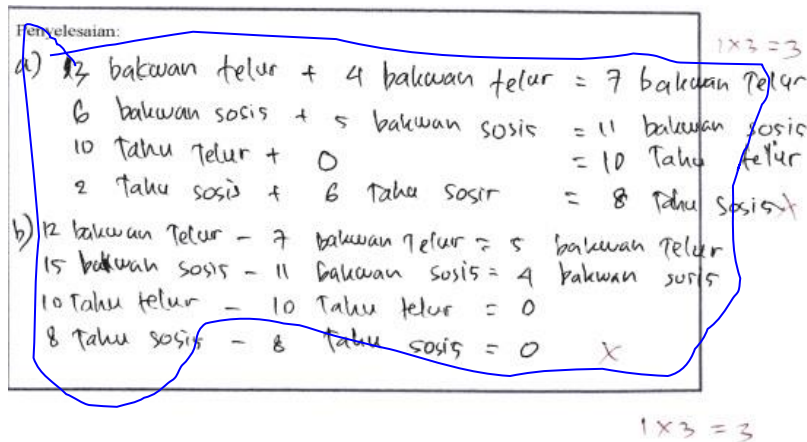 Penyelesaian:
1x3 = 3
a) 3 bakwan telur + 4 bakwan telur = 7 bakwan Telur
6 bakwan sosis + 5 bakwan sosis = 11 bakwan sosis
10 Tahu Telur + 0 = 10 Tahu telur
2 Tahu sosis + 6 Tahu sosir = 8 Tahu sosis x
b) 12 bakwan Telur - 7 bakwan Telur = 5 bakwan Telur
15 bakwan sosis - 11 bakwan sosis = 4 bakwan sosis
10 Tahu telur - 10 Tahu telur = 0
8 Tahu sosis - 8 Tahu sosis = 0 x
1x3 = 3